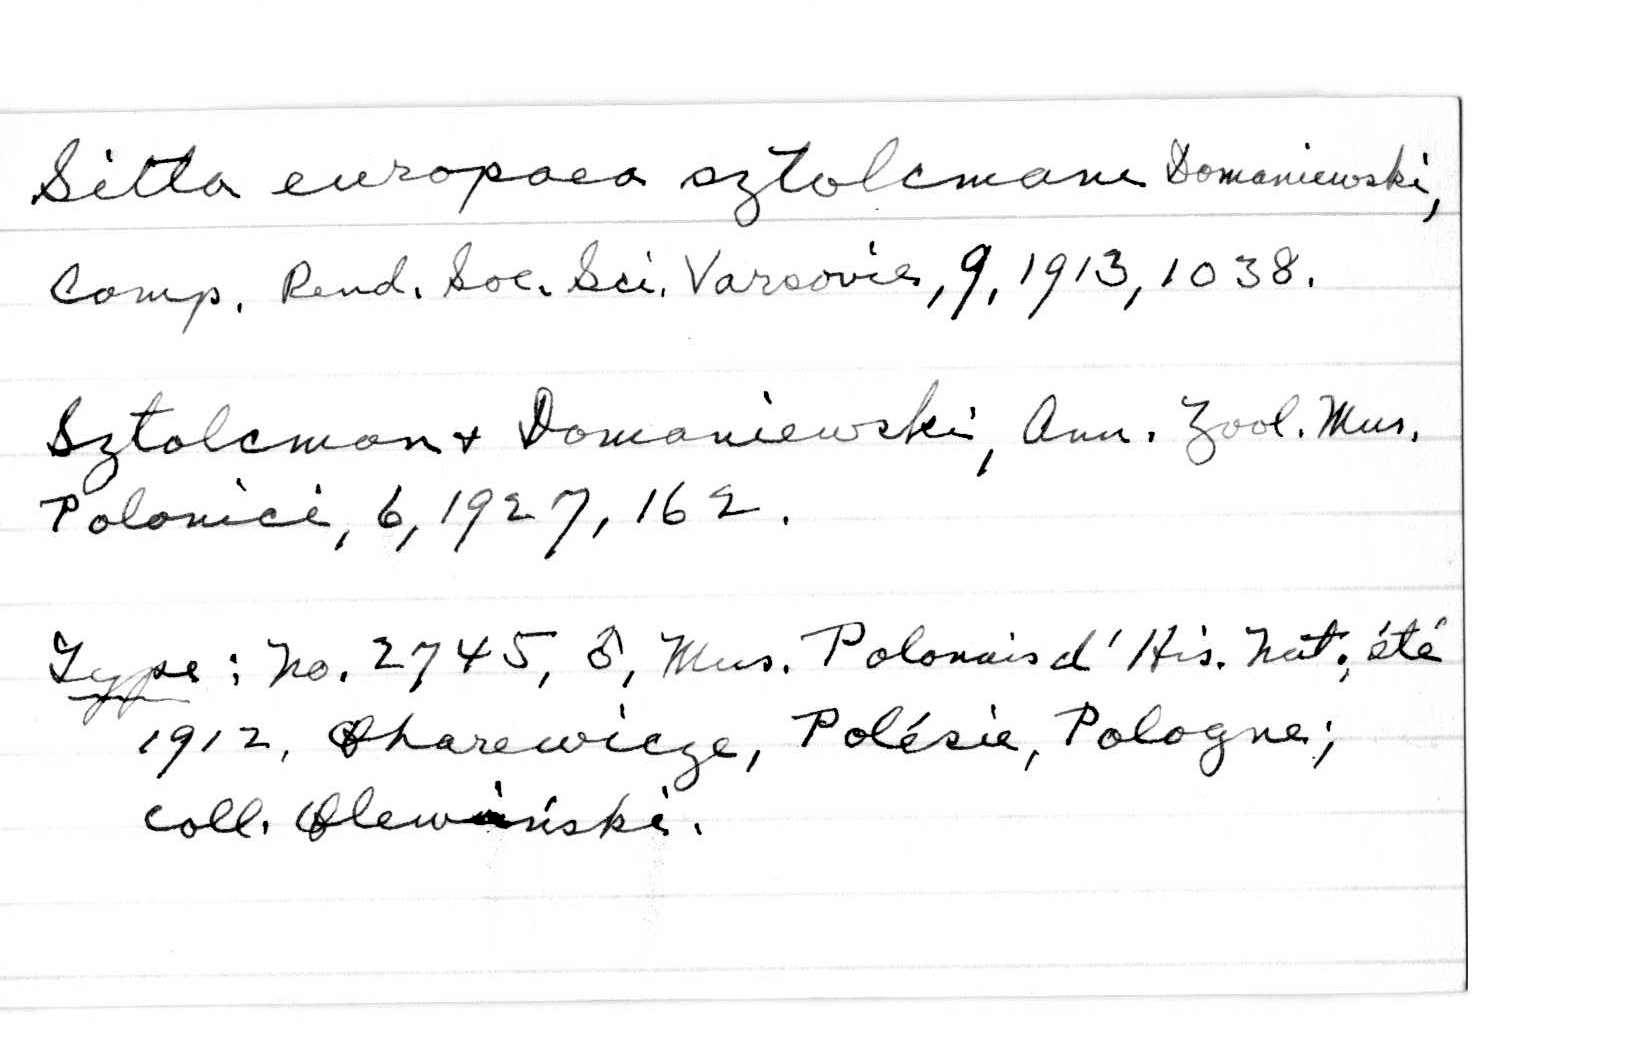 Sitta europaea sztolcmani Domaniewski,
Comp. Rend. Soc. Sci. Varsovie, 9, 1913, 1038.
Sztolcman & Domaniewski, Ann. Zool. Mus.
Polonici, 6, 1927, 162.
Type: No. 2745, ♂, Mus. Polonais d'His. Nat., été
1912, Polésie, Pologne;
coll.